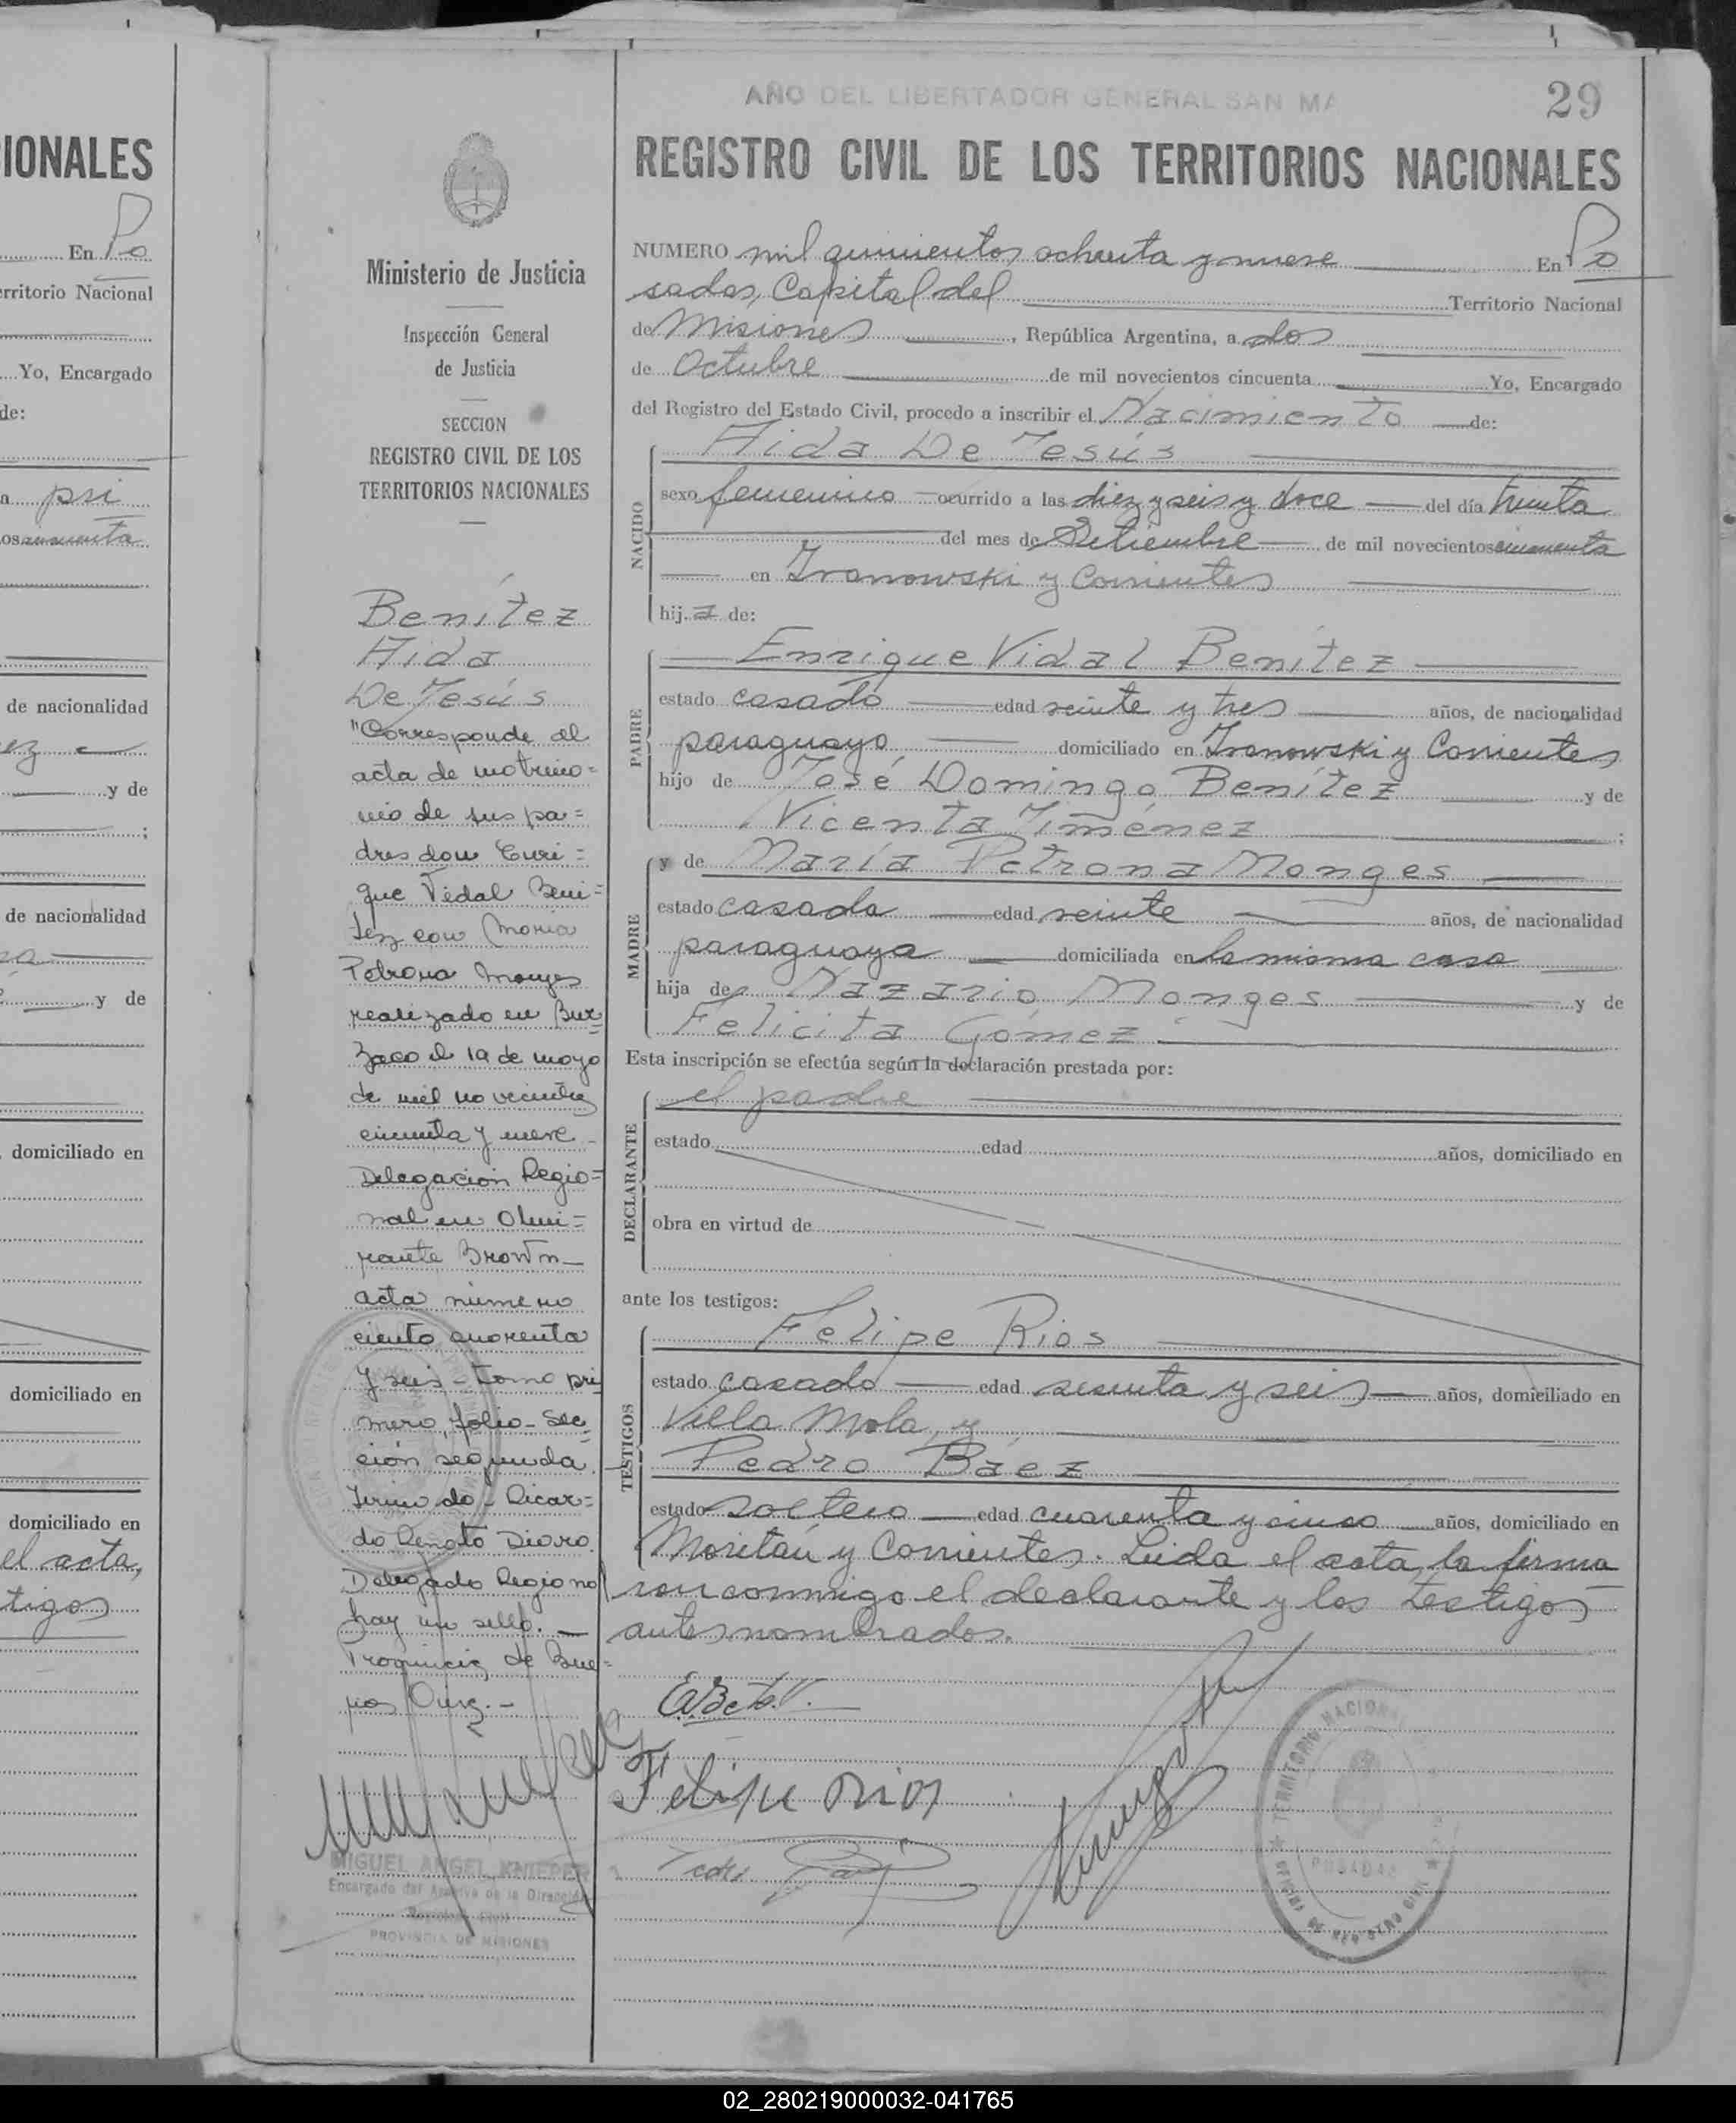 IONALES
En Po
erritorio Nacional
Yo, Encargado
de:
psi
os cincuenta
de nacionalidad
ez
y de
;
de nacionalidad
y de
domiciliado en
domiciliado en
domiciliado en
el acta,
tigos
Ministerio de Justicia
Inspección General
de Justicia
SECCION
REGISTRO CIVIL DE LOS
TERRITORIOS NACIONALES
Benítez
Aida
De Jesús
"Corresponde al
acta de matrimo=
nio de sus pa=
dres don Enri=
que Vidal Beni=
tez con Maria
Petrona Monges
realizado en Bur=
zaco el 19 de mayo
de mil novecientos
cincuenta y nueve -
Delegación Regio=
nal en Almi=
rante Brown -
acta número
ciento cuarenta
y seis - tomo pri
mero, folio - Sec=
ción segunda.
Firmado - Ricar=
do Renato
Delegado Regional
hay un sello. -
Provincia de Bue=
nos Aires. -
MIGUEL ANGEL KNIEPER
Encargado del Archivo de la Dirección
Registro Civil
PROVINCIA DE MISIONES
AÑO DEL LIBERTADOR GENERAL SAN MA
29
REGISTRO CIVIL DE LOS TERRITORIOS NACIONALES
NUMERO mil quinientos ochenta y nueve En Po
sadas, Capital del Territorio Nacional
de Misiones, República Argentina, a dos
de Octubre de mil novecientos cincuenta Yo, Encargado
del Registro del Estado Civil, procedo a inscribir el Nacimiento de:
Aida De Jesús
NACIDO
sexo femenino ocurrido a las diez y seis y doce del día treinta
del mes de Setiembre de mil novecientos cincuenta
en Ivanowski y Corrientes
hij a de:
Enrique Vidal Benítez
PADRE
estado casado edad veinte y tres años, de nacionalidad
paraguayo domiciliado en Ivanowski y Corrientes
hijo de José Domingo Benítez y de
Vicenta Jiménez ;
y de María Petrona Monges
MADRE
estado casada edad veinte años, de nacionalidad
paraguaya domiciliada en la misma casa
hija de Nazario Monges y de
Felicita Gómez
Esta inscripción se efectúa según la declaración prestada por:
el padre
DECLARANTE
estado edad años, domiciliado en
obra en virtud de
ante los testigos:
Felipe Rios
TESTIGOS
estado casado edad sesenta y seis años, domiciliado en
Villa Mola y
Pedro Báez
estado soltero edad cuarenta y cinco años, domiciliado en
Moritán y Corrientes. Leida el acta, la firma
ron conmigo el declarante y los testigos
antes nombrados.
Felipe Rios
TERRITORIO NACIONAL
POSADAS
OFICINA DE REGISTRO CIVIL
02_280219000032-041765